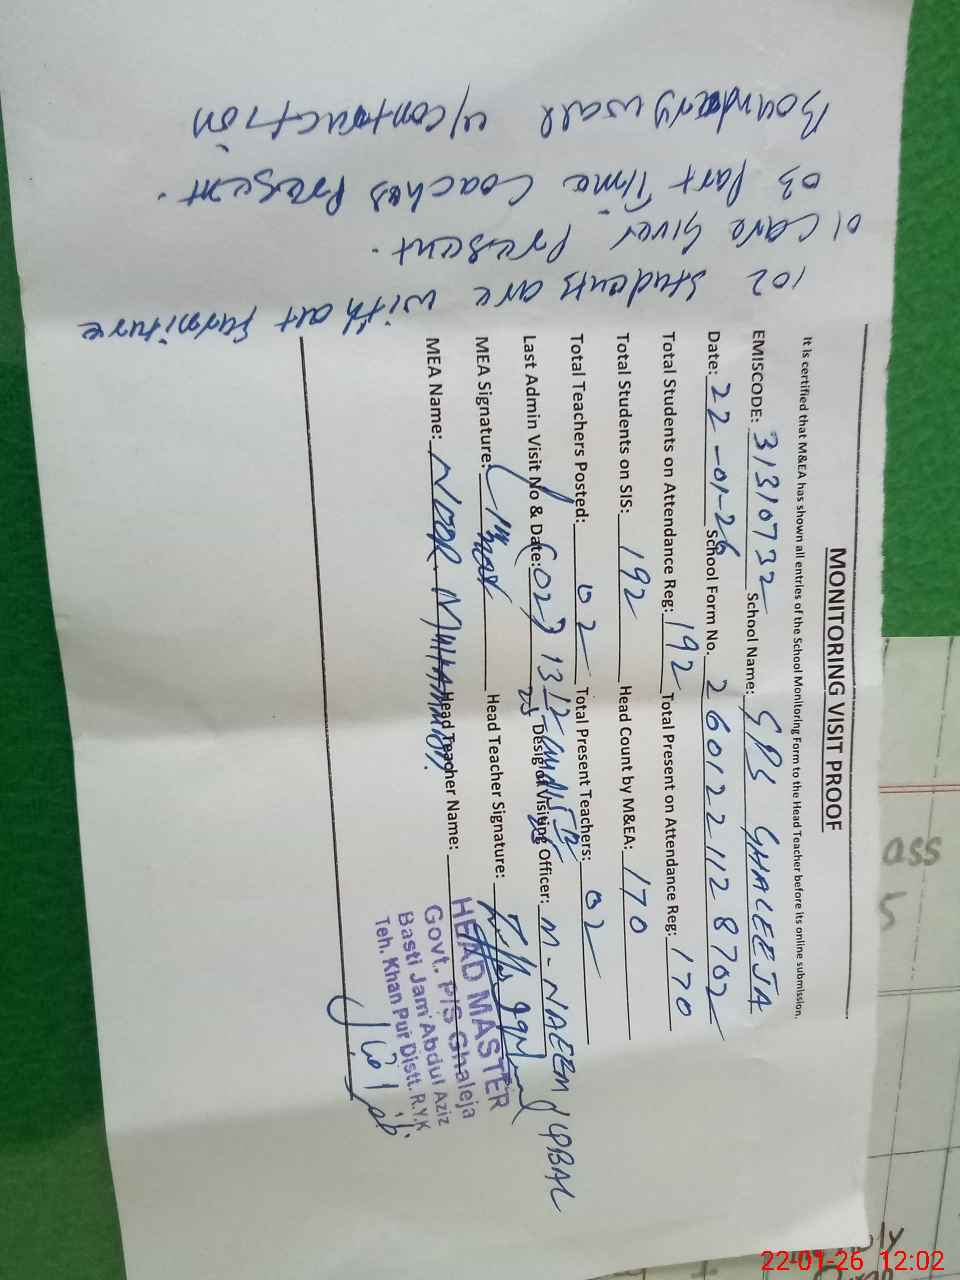 MONITORING VISIT PROOF
It is certified that M&EA has shown all entries of the School Monitoring Form to the Head Teacher before its online submission.
EMISCODE: 31310732 School Name: GPS GHALEEJA
Date: 22-01-26 School Form No. 2601221128702
Total Students on Attendance Reg: 192 Total Present on Attendance Reg: 170
Total Students on SIS: 192 Head Count by M&EA: 170
Total Teachers Posted: 02 Total Present Teachers: 02
Last Admin Visit No & Date: (02) 13 Desig of Visiting Officer: M-NAEEM IQBAL
MEA Signature: Head Teacher Signature:
MEA Name: NOOR MUHAMMAD. Head Teacher Name:
HEAD MASTER
Govt. P/S Ghaleja
Basti Jam Abdul Aziz
Teh. Khan Pur Distt. R.Y.K
102 students are without furniture
01 Care Giver Present.
03 Part Time Coaches Present.
Boundary wall u/contruction
ass
5
22-01-26 12:02